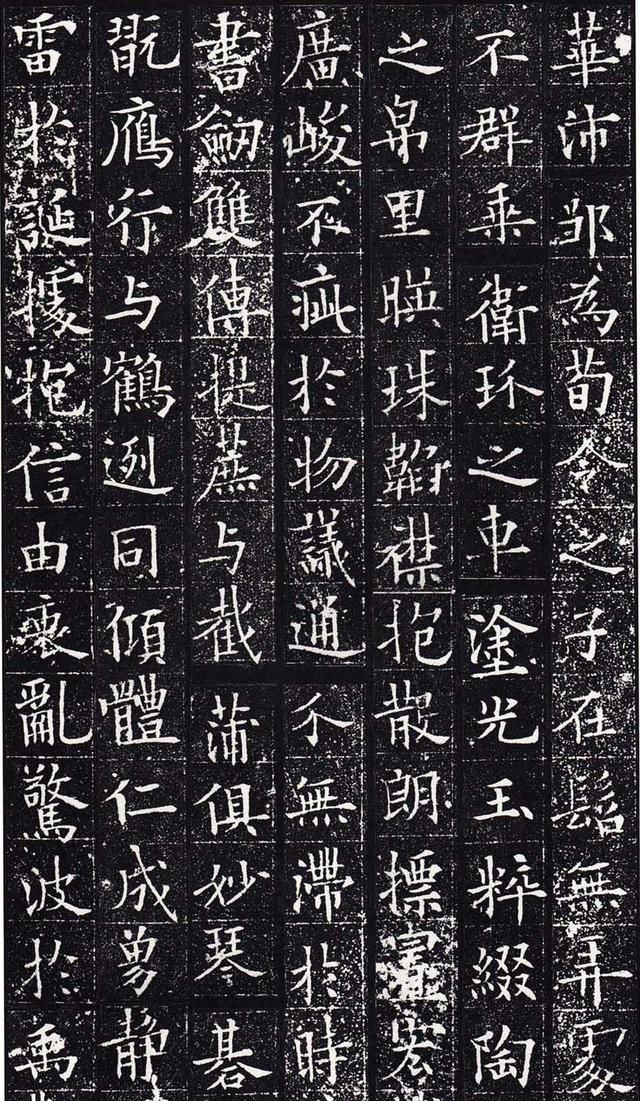 華沛邹為荀令之子在髫無弄處
不群乘衛玠之車塗光玉粹綴陶
之帛里暎珠韜襟抱散朗摽靈宏
廣峻不疵於物議通尒無滯於時
書劒雙傳提蒸与截蒲俱妙琴碁
翫鴈行与鶴迾同傾體仁成勇静
雷於誕據抱信由衷亂驚波於禹